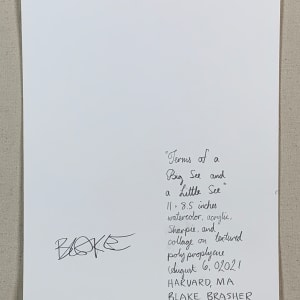 "Terms of a
Big See and
a Little See"
11 x 8.5 inches
watercolor, acrylic,
Sharpie, and
collage on textured
polypropylene
August 6, 02021
HARVARD, MA
BLAKE BRASHER
BLAKE